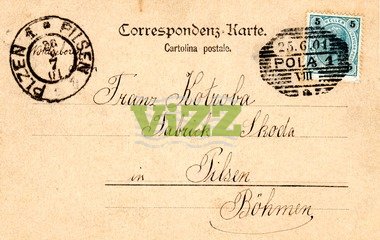 Correspondenz-Karte.
Cartolina postale.
PLZEN 1 * PILSEN
26
7
01
25.6.01
POLA 1
VIII
5 5
Franz Kotroba
Fabrick Skoda
in Pilsen
Böhmen
VIZZ